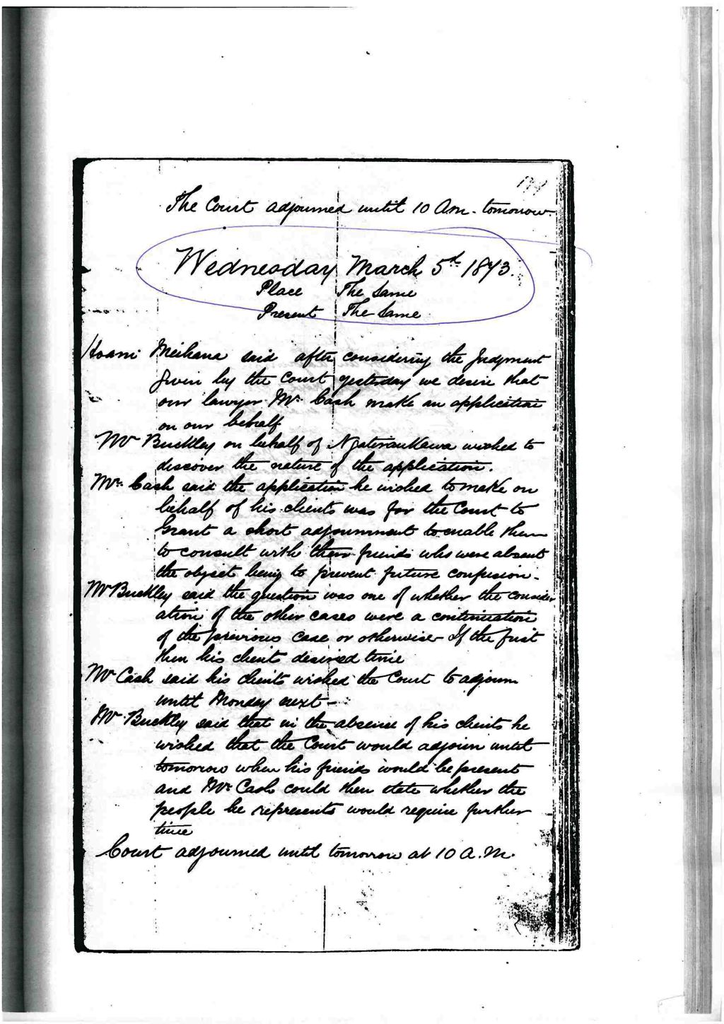 The Court adjourned until 10 Am. tomorrow
Wednesday March 5th 1873.
Place The Same
Present The Same
Hoani Meihana said after considering the Judgment
given by the Court yesterday we desire that
our lawyer Mr. Cash make an application
on our behalf
Mr Buckley on behalf of Ngatiraukawa wished to
discover the nature of the application.
Mr. Cash said the application he wished to make on
behalf of his clients was for the Court to
Grant a short adjournment to enable them
to consult with their friends who were absent
the object being to prevent future confusion -
Mr Buckley said the question was one of whether the consider
ation of the other cases were a continuation
of the previous case or otherwise - If the first
then his client desired time
Mr Cash said his clients wished the Court to adjourn
until Monday next -
Mr. Buckley said that in the absence of his clients he
wished that the Court would adjourn until
tomorrow when his friends would be present
and Mr Cash could then state whether the
people he represents would require further
time
Court adjourned until tomorrow at 10 A.M.